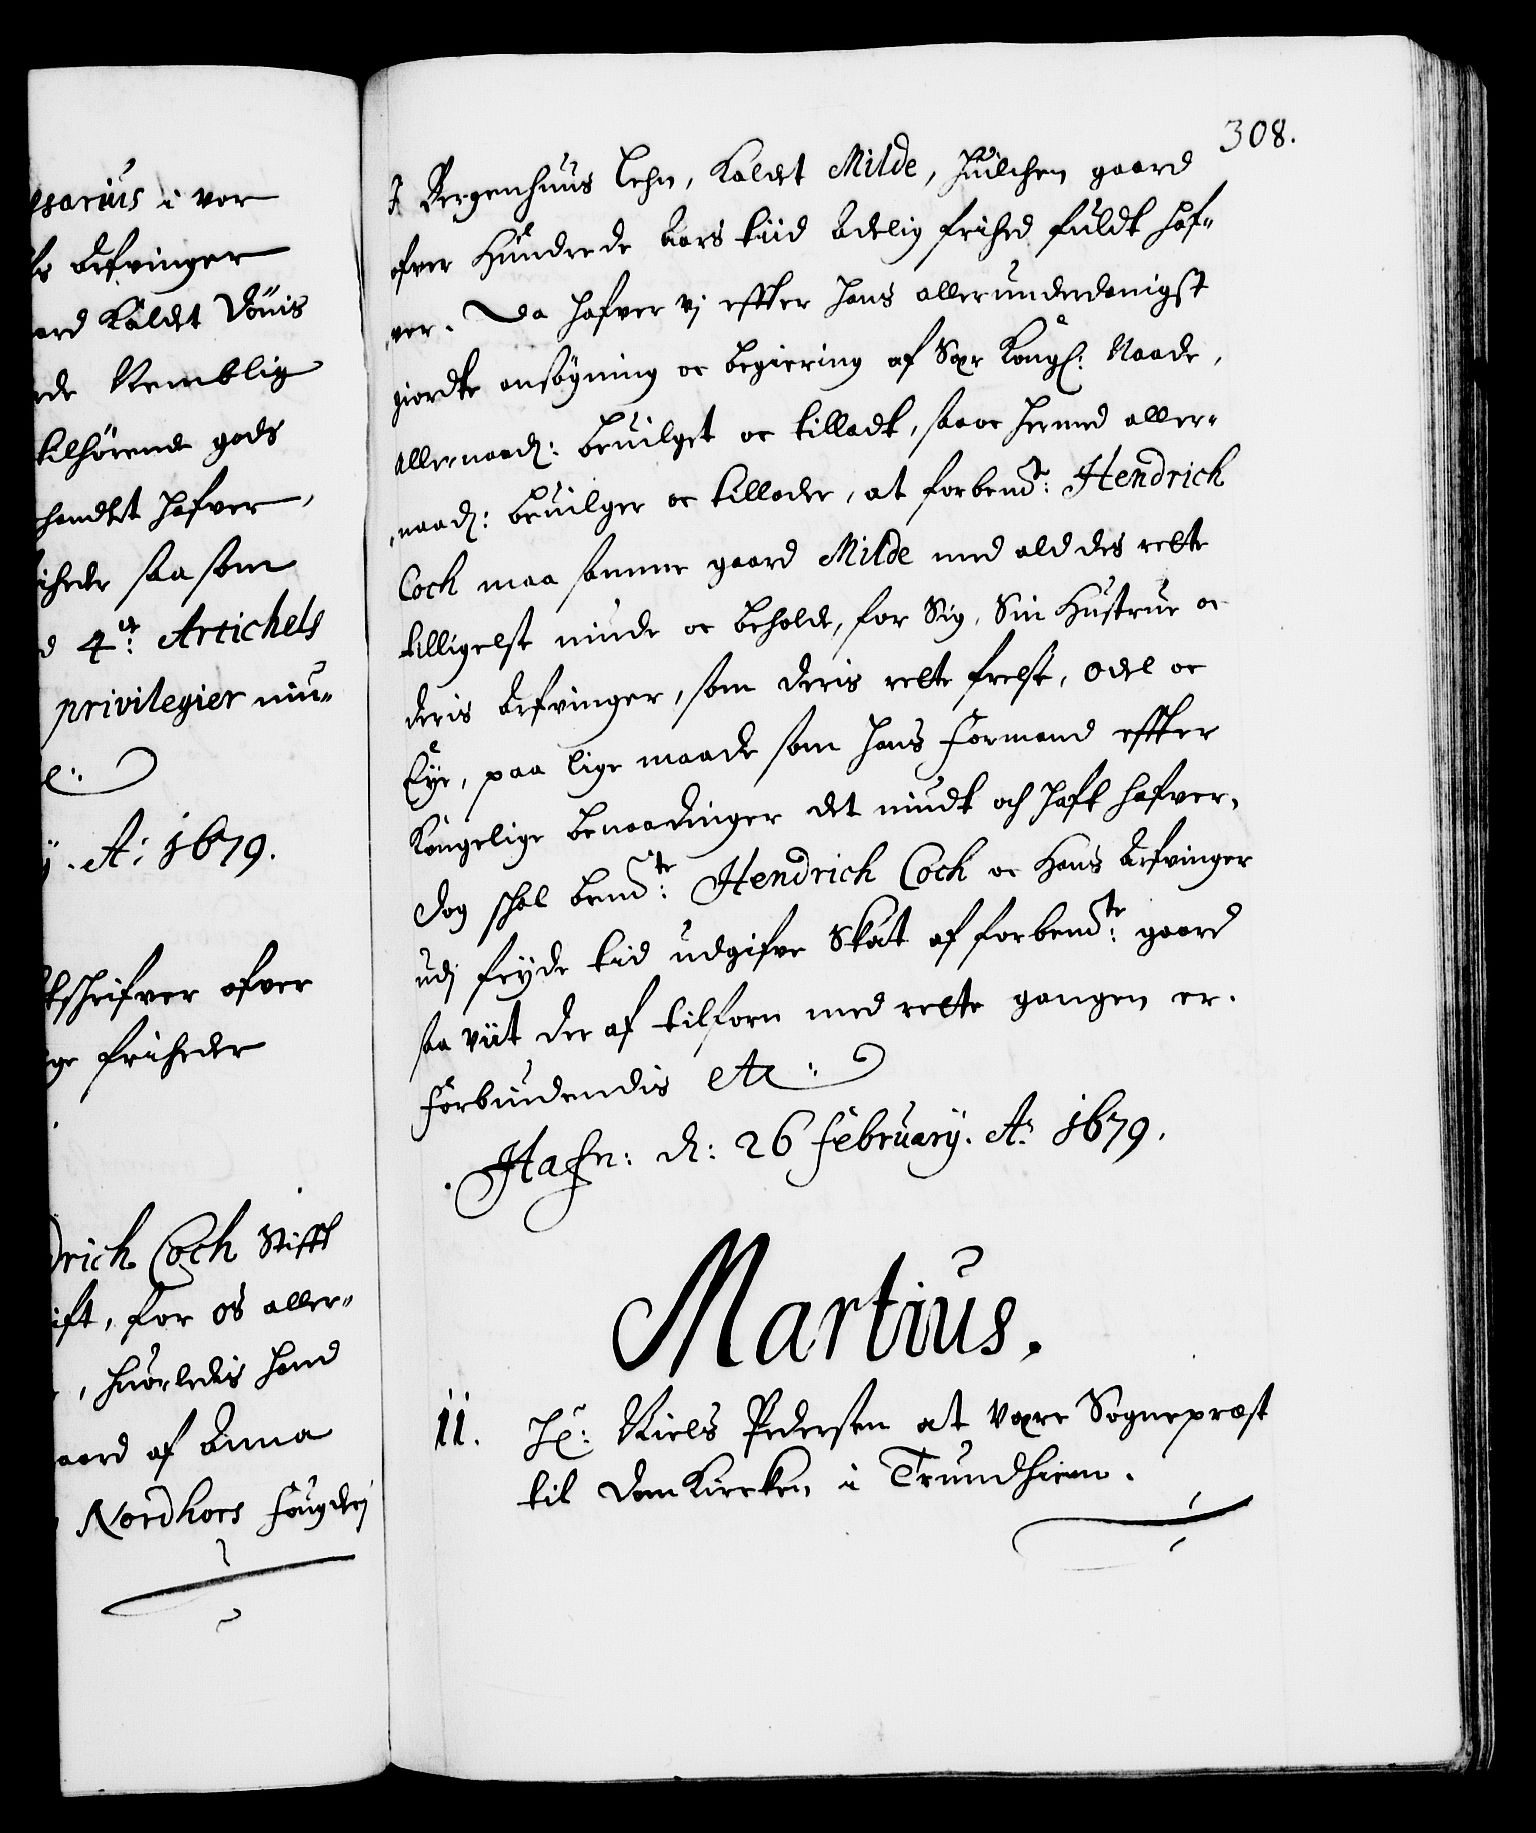 sarius i vor
Arfvinger
ord Kaldet Dönis
rde Nemblig
tilhörende gods
handlet hafver,
iheder saa som
4de: Artichels
privilegier niu-
A: 1679.
schrifver ofver
ge friheder
drich Coch Stifft
ift, for os aller-
, huorledis hand
aard af Anna
Nordhors fougderj
308.
I Bergenhuus Lehn, Kaldet Milde, huilchen gaard
ofver Hundrede Aars tiid Adelig frihed fuldt haf-
ver. Da hafver vj effter hans allerunderdanigst
giordte ansøgning oc begiering af Sær Kongl: Naade,
allernaad: beuilget oc tilladt, saa oc hermed aller-
naad: beuilger oc tillader, at forbemt: Hendrich
Coch maa samme gaard Milde med ald des rette
tilligelse niude oc beholde, for Sig, Sin Hustrue oc
deris Arfvinger, som deris rette frelse, Odel oc
Eye, paa lige maade som hans formand effter
Kongelige benaadinger det niudt och haft hafver.
Dog schal bemte: Hendrich Coch oc Hans Arfvinger
udj feyde tid udgifve Skat af forbemte: gaard
saa viit der af tilforn med rette gangen er.
Forbiudendis etc:
Hafn: d: 26 february. Ao 1679.
Martius.
11. Hr: Niels Pedersen at være Sognepræst
til Dom Kircken i Trundhiem.